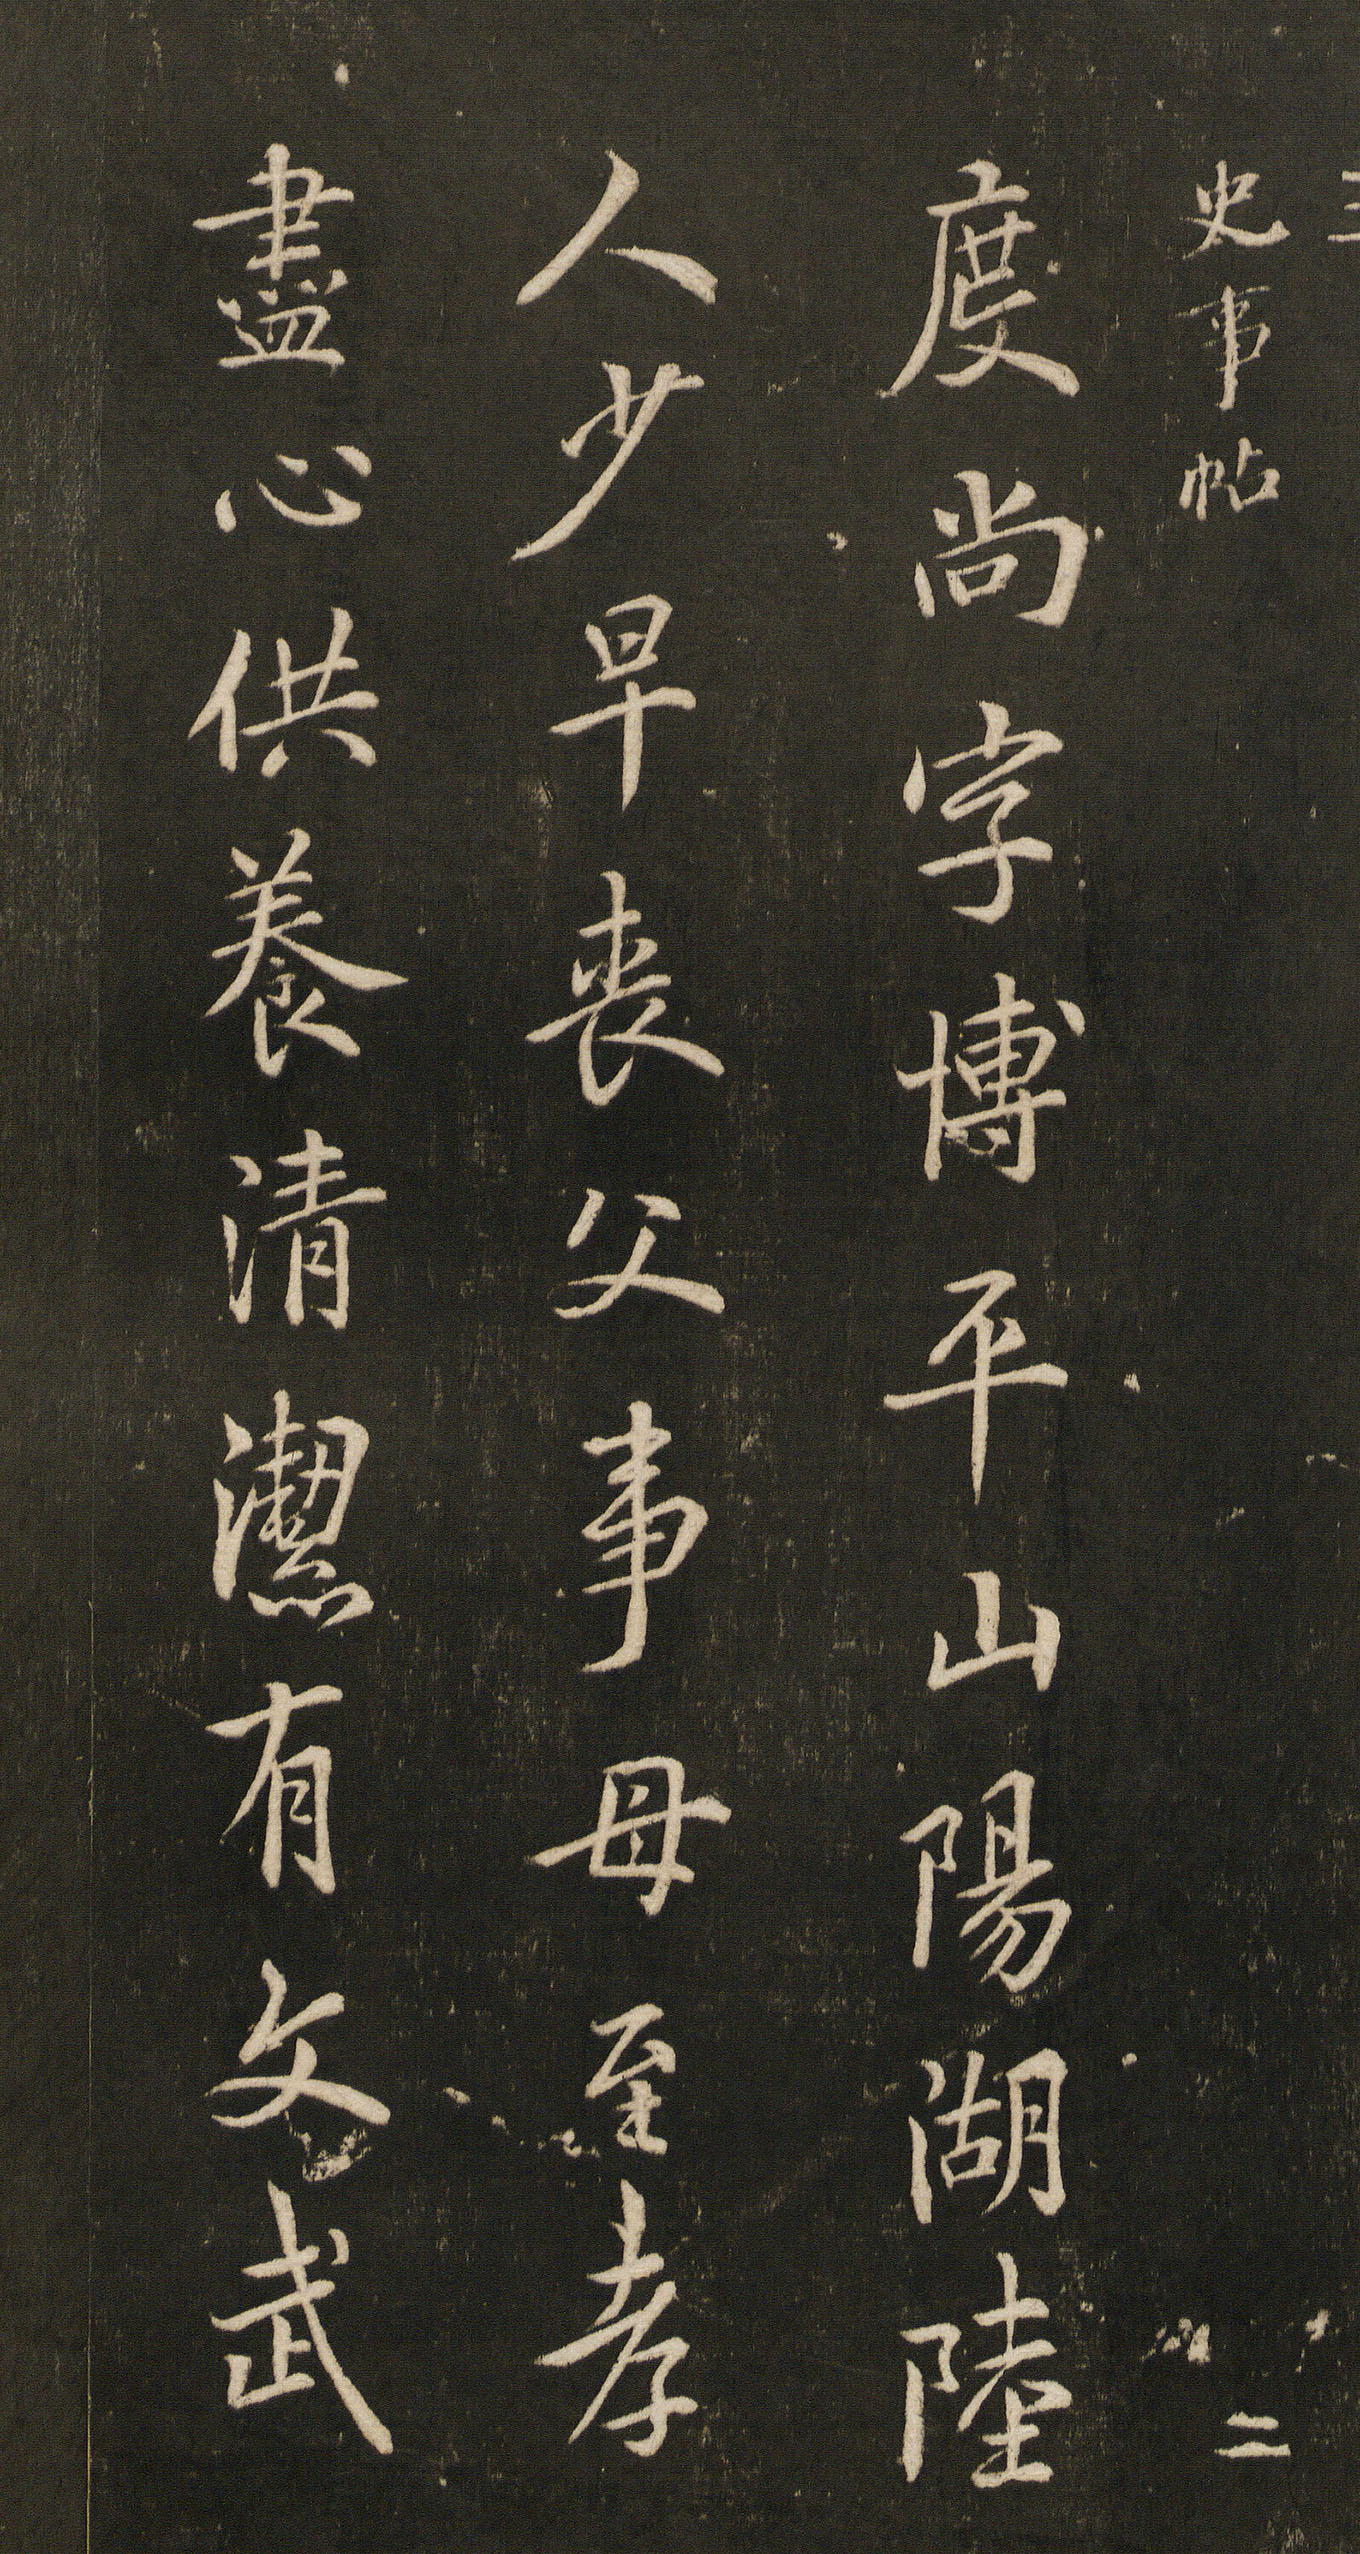 史事帖 二
度尚字博平山陽湖陸
人少早喪父事母至孝
盡心供養清潔有文武